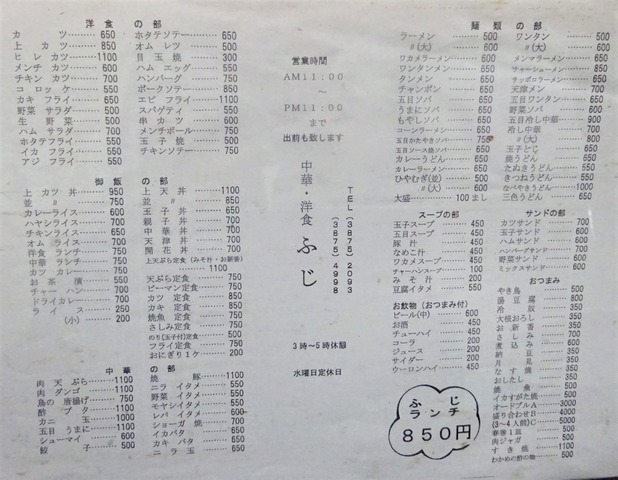 洋食の部
カツ 650
上カツ 850
ヒレカツ 1100
メンチカツ 600
チキンカツ 700
コロッケ 550
カキフライ 650
野菜サラダ 500
生野菜 500
ハムサラダ 700
ホタテフライ 550
イカフライ 550
アジフライ 550
ホタテソテー 650
オムレツ 500
目玉焼 300
ハムエッグ 550
ハンバーグ 750
ポークソテー 850
エビフライ 1100
スパゲティ 550
串カツ 600
メンチボール 750
玉子焼 500
チキンソテー 750
御飯の部
上カツ丼 950
並〃 750
カレーライス 600
ハヤシライス 700
チキンライス 650
オムライス 700
洋食ランチ 750
中華ランチ 750
カツカレー 850
お茶漬 550
チャーハン 700
ドライカレー 700
ライス 250
(小) 200
上天丼 1100
並〃 850
玉子丼 650
親子丼 700
中華丼 700
天津丼 700
開花丼 700
上天ぷら定食(みそ汁・お新香) 1100
天ぷら定食 750
ピーマン定食 750
カツ定食 850
カキ定食 850
焼魚定食 750
さしみ定食 750
のり(玉子付)定食 500
フライ定食 750
おにぎり1ケ 200
中華
肉天ぷら 1100
肉ダンゴ 1100
鳥の唐揚げ 750
酢ブタ 1100
カニ玉 1000
五目うまに 1100
シューマイ 600
餃子 500
焼豚 1100
ニライタメ 550
野菜イタメ 550
モヤシイタメ 550
レバイタメ 600
ショーガ焼 700
イカバタ 650
カキバタ 650
ニラ玉 550
営業時間
AM11:00
~
PM11:00
まで
出前も致します
中華・洋食 ふじ
TEL (3875) 2093
(3875) 4098
3時~5時休憩
水曜日定休日
麺類の部
ラーメン 500
〃(大) 600
ワカメラーメン 600
ワンタンメン 650
タンメン 650
チャンポン 650
五目ソバ 650
うまにソバ 650
もやしソバ 650
コーンラーメン 650
五目かたやきソバ 750
五目ソース焼ソバ 650
カレーうどん 650
カレーラーメン 650
ひやむぎ(並) 500
〃(大) 600
大盛 100まし
ワンタン 500
〃(大) 600
メンマラーメン 650
チャーシューメン 850
サッポロラーメン 650
天津メン 700
五目ワンタン 650
野菜ソバ 650
五目冷し中華 900
冷し中華 700
〃(大) 800
玉子とじ 650
焼うどん 650
たぬきうどん 550
きつねうどん 550
なべやきうどん 1000
三色うどん 650
スープの部
玉子スープ 450
五目スープ 500
豚汁 450
なめこ汁 450
ワカメスープ 450
チャーハンスープ 100
みそ汁 200
豆腐イタメ 550
お飲物(おつまみ付)
ビール(中) 600
お酒 450
チューハイ 450
コーラ 200
ジュース 200
サイダー 200
ウーロンハイ 450
サンドの部
カツサンド 700
玉子サンド 600
ハムサンド 600
ハンバーグサンド 700
野菜サンド 600
ミックスサンド 650
おつまみ
やき鳥 500
湯豆腐 800
冷奴 350
大根おろし 350
お新香 350
さしみ 700
煮込み 600
納豆 350
月見 350
なす焼 350
おしたし 350
焼魚 500
イカすがた焼 650
オードブルA 3000
盛り合わせB 4000
(3~4人前)C 5000
春巻1皿 500
肉ジャガ 500
すき焼 1100
わかめの酢の物 500
ふじ
ランチ
850円